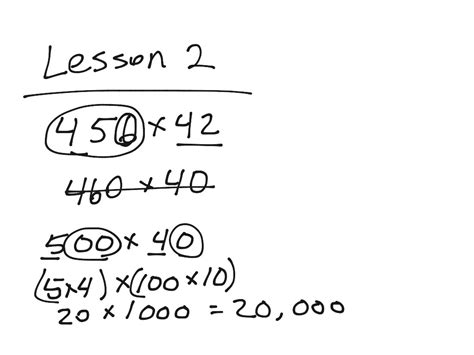 Lesson 2
456 × 42
460 × 40
500 × 40
(5×4) × (100 × 10)
20 × 1000 = 20,000